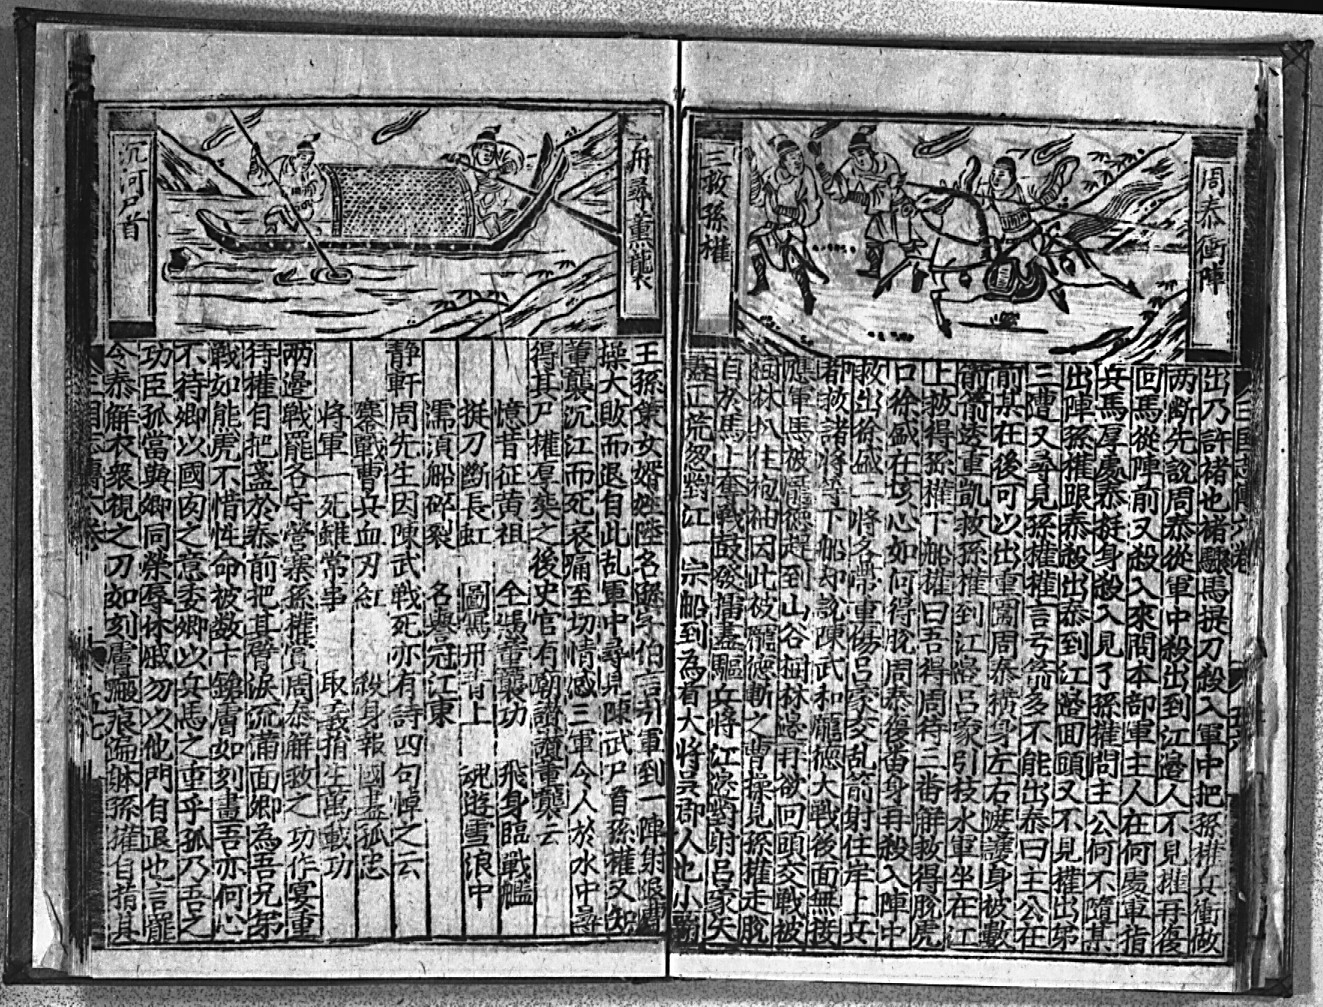 周泰衝陣
三救孫權
出乃許褚也褚驟馬提刀殺入軍中把孫權兵衝做
两断先說周泰從軍中殺出到江邉人不見權再復
回馬從陣前又殺入來問本部軍主人在何處軍指
兵馬厚處泰挺身殺入見了孫權問主公何不隨某
出陣孫權跟泰殺出泰到江邉回頭又不見權出第
三遭又尋見孫權權言弓箭多不能出泰曰主公在
前某在後可以出重圍周泰橫身左右遮護身被數
箭箭透重凱救孫權到江邉吕蒙引枝水軍坐在江
上救得孫權下船權曰吾得周待三番解救得脫虎
口徐盛在垓心如何得脫周泰復畨身再殺入陣中
救出徐盛二將各帶重傷吕蒙交乱箭射住岸上兵
都救諸將等下船却說陳武和龐德大戰後面無接
應軍馬被龐德趕到山谷樹林邉再欲回頭交戰被
樹林扒住袍袖因此被龐德斬之曹操見孫權走脫
自於馬上奪戰鼓發擂盡驅兵將江邉對射吕蒙矢
盡正荒忽對江一宗船到為首大將吳郡人也小霸
舟尋董襲
沉河尸首
王孫策女婿姓陸名遜字伯言引軍到一陣射退曹
操大敗而退自此乱軍中尋見陳武尸首孫權又知
董襲沉江而死哀痛至切情感三軍今人於水中尋
得其尸權厚葬之後史官有廟讃讃董襲云
憶昔征黄祖　全張董襲功　飛身臨戰艦
挺刀斷長虹　圖寫丹青上　魂遊雪浪中
濡湏船碎裂　名譽冠江東
靜軒周先生因陳武戰死亦有詩四句悼之云
寨戰曹兵血刃紅　殺身報國盡孤忠
將軍一死雖常事　取義捐生萬載功
兩邉戰罷各守營寨孫權賞周泰解救之功作宴重
待權自把盞於泰前把其臂淚流滿面卿為吾兄弟
戰如熊虎不惜性命被数十鎗膚如刻畫吾亦何心
不待卿以國肉之意委卿以兵馬之重乎孤乃吾之
功臣孤當與卿同榮辱休戚勿以他門自退也言罷
令泰解衣衆視之刀如刻膚瘢痕徧躰孫權自指其